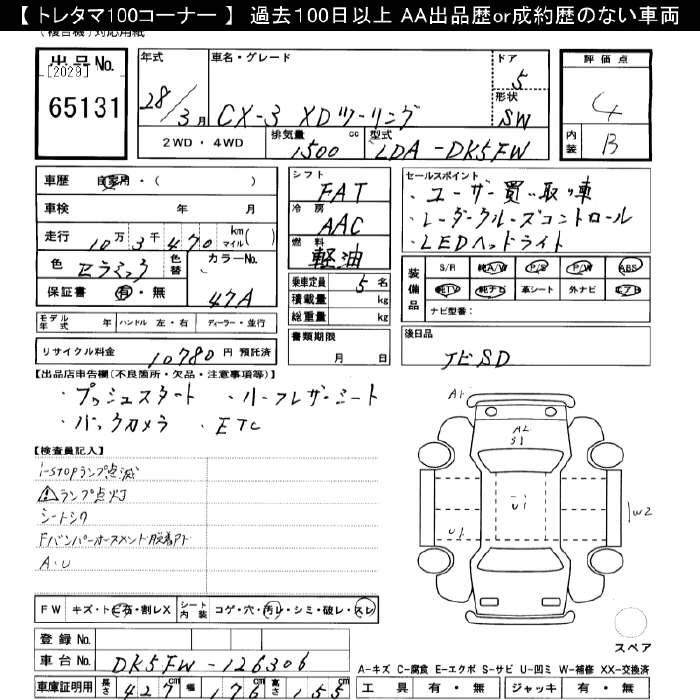 【 トレタマ100コーナー 】 過去100日以上 AA出品歴or成約歴のない車両
(複合機)対応用紙
出品No. [2029]
65131
年式 28/3月
車名・グレード
CX-3 XDツーリング
ドア 5
形状 SW
評価点 4
内装 B
2WD ・ 4WD
排気量 cc 1500
型式 LDA-DK5FW
車歴 自家用・( )
車検 年 月
走行 10万3千470 km(マイル)
色 セラミック
色替
カラーNo. 47A
保証書 有・無
シフト FAT
冷房 AAC
燃料 軽油
乗車定員 5 名
積載量 kg
総重量 kg
書類期限
月 日
セールスポイント
・ユーザー買い取り車
・レーダークルーズコントロール
・LEDヘッドライト
装備品
S/R 純A/W P/S P/W ABS
純TV 純ナビ 革シート 外ナビ エアB
ナビ型番:
後日品
ナビSD
モデル年式 年 ハンドル 左・右 ディーラー・並行
リサイクル料金 10780 円 預託済
【出品店申告欄(不良箇所・欠品・注意事項等)】
・プッシュスタート ・ハーフレザーシート
・バックカメラ ・ETC
【検査員記入】
i-STOPランプ点滅
⚠ランプ点灯
シートシワ
A・U
A1
A2
S1
U1
U1
W2
スペア
FW キズ・トビ石・割レX
シート内装 コゲ・穴・汚レ・シミ・破レ・スレ
登録No.
車台No. DK5FW-126306
車庫証明用 長さ 427cm 幅 176cm 高さ 155cm
A-キズ C-腐食 E-エクボ S-サビ U-凹ミ W-補修 XX-交換済
工具 有・無 ジャッキ 有・無